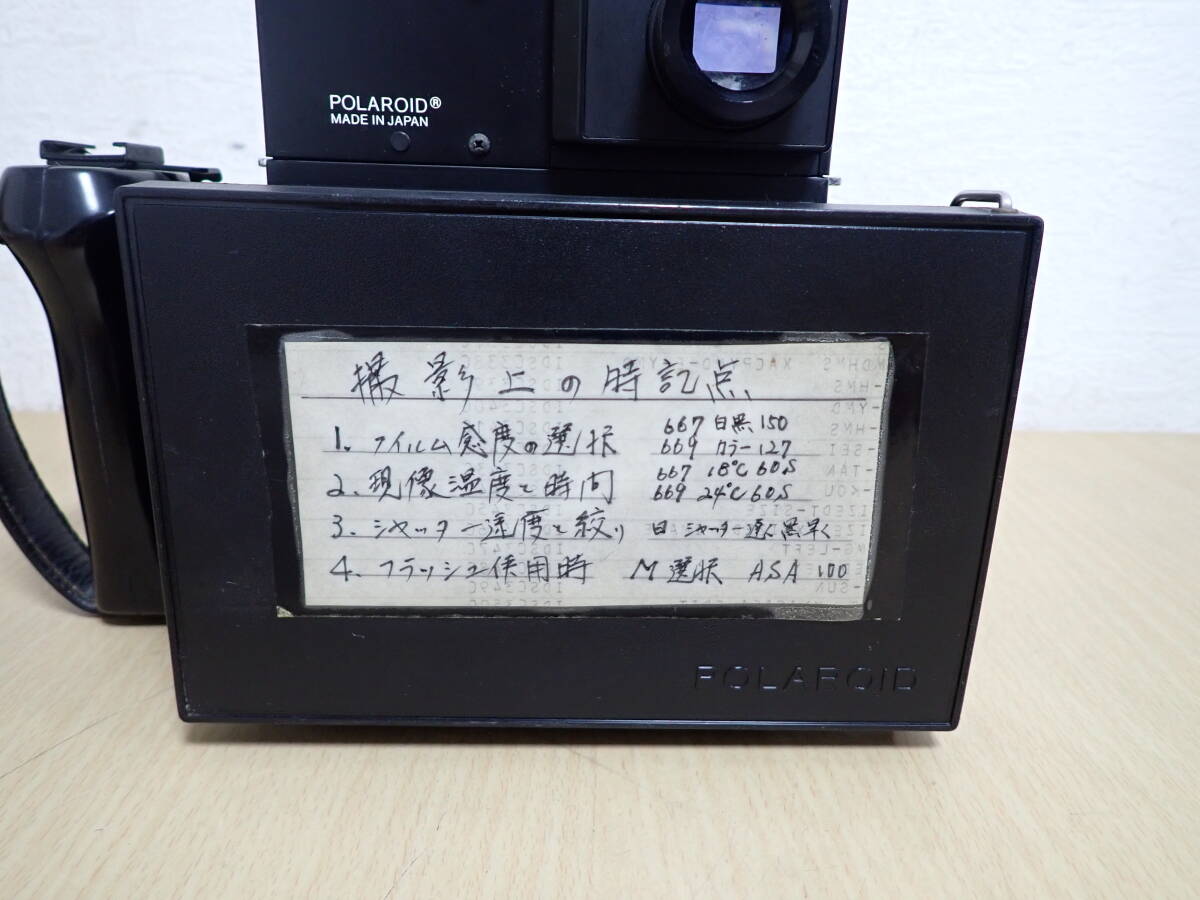 POLAROID®
MADE IN JAPAN
撮影上の時記点
1. フイルム感度の選択 667 白黒 150
669 カラー 127
2. 現像温度と時間 667 18℃ 60S
669 24℃ 60S
3. シャッター速度と絞り 白 シャッター速く 黒早く
4. フラッシュ使用時 M 選択 ASA 100
POLAROID